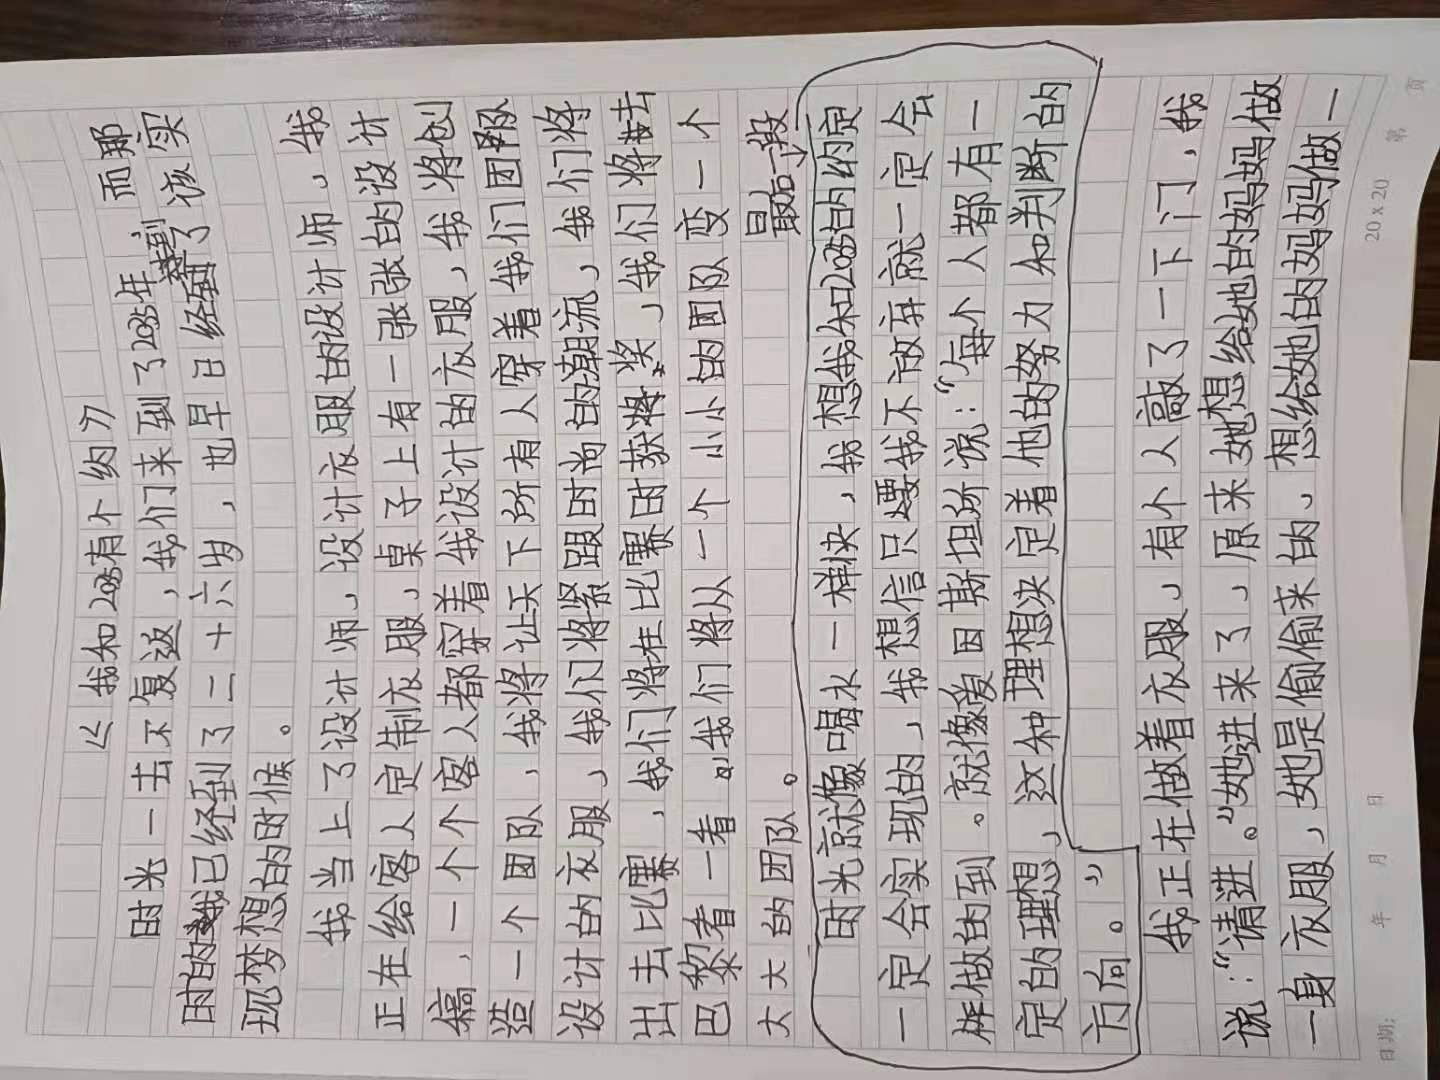 《我和2035有个约》
时光一去不复返，我们来到了2035年，而那
时的我已经到了二十六岁，也早已经到了该实
现梦想的时候。
我当上了设计师、设计衣服的设计师、我
正在给客人定制衣服，桌子上有一张张的设计
稿，一个个客人都穿着我设计的衣服，我将创
造一个团队，我将让天下所有人穿着我们团队
设计的衣服，我们将紧跟时尚的潮流，我们将
出去比赛，我们将在比赛时获奖，我们将去
巴黎看一看。我们将从一个小小的团队变一个
大大的团队。
最后一段
时光就像喝水一样快，我想我和2035的约定
一定会实现的，我想信只要我不放弃就一定会
样做的到。就像爱因斯坦所说：“每个人都有一
定的理想，这种理想决定着他的努力和判断的
方向。”
我正在做着衣服，有个人敲了一下门，我
说：“请进。”她进来了，原来她想给她的妈妈做
一身衣服，她是偷偷来的，想给她的妈妈做一
日期：
年 月 日
20 x 20
第 页